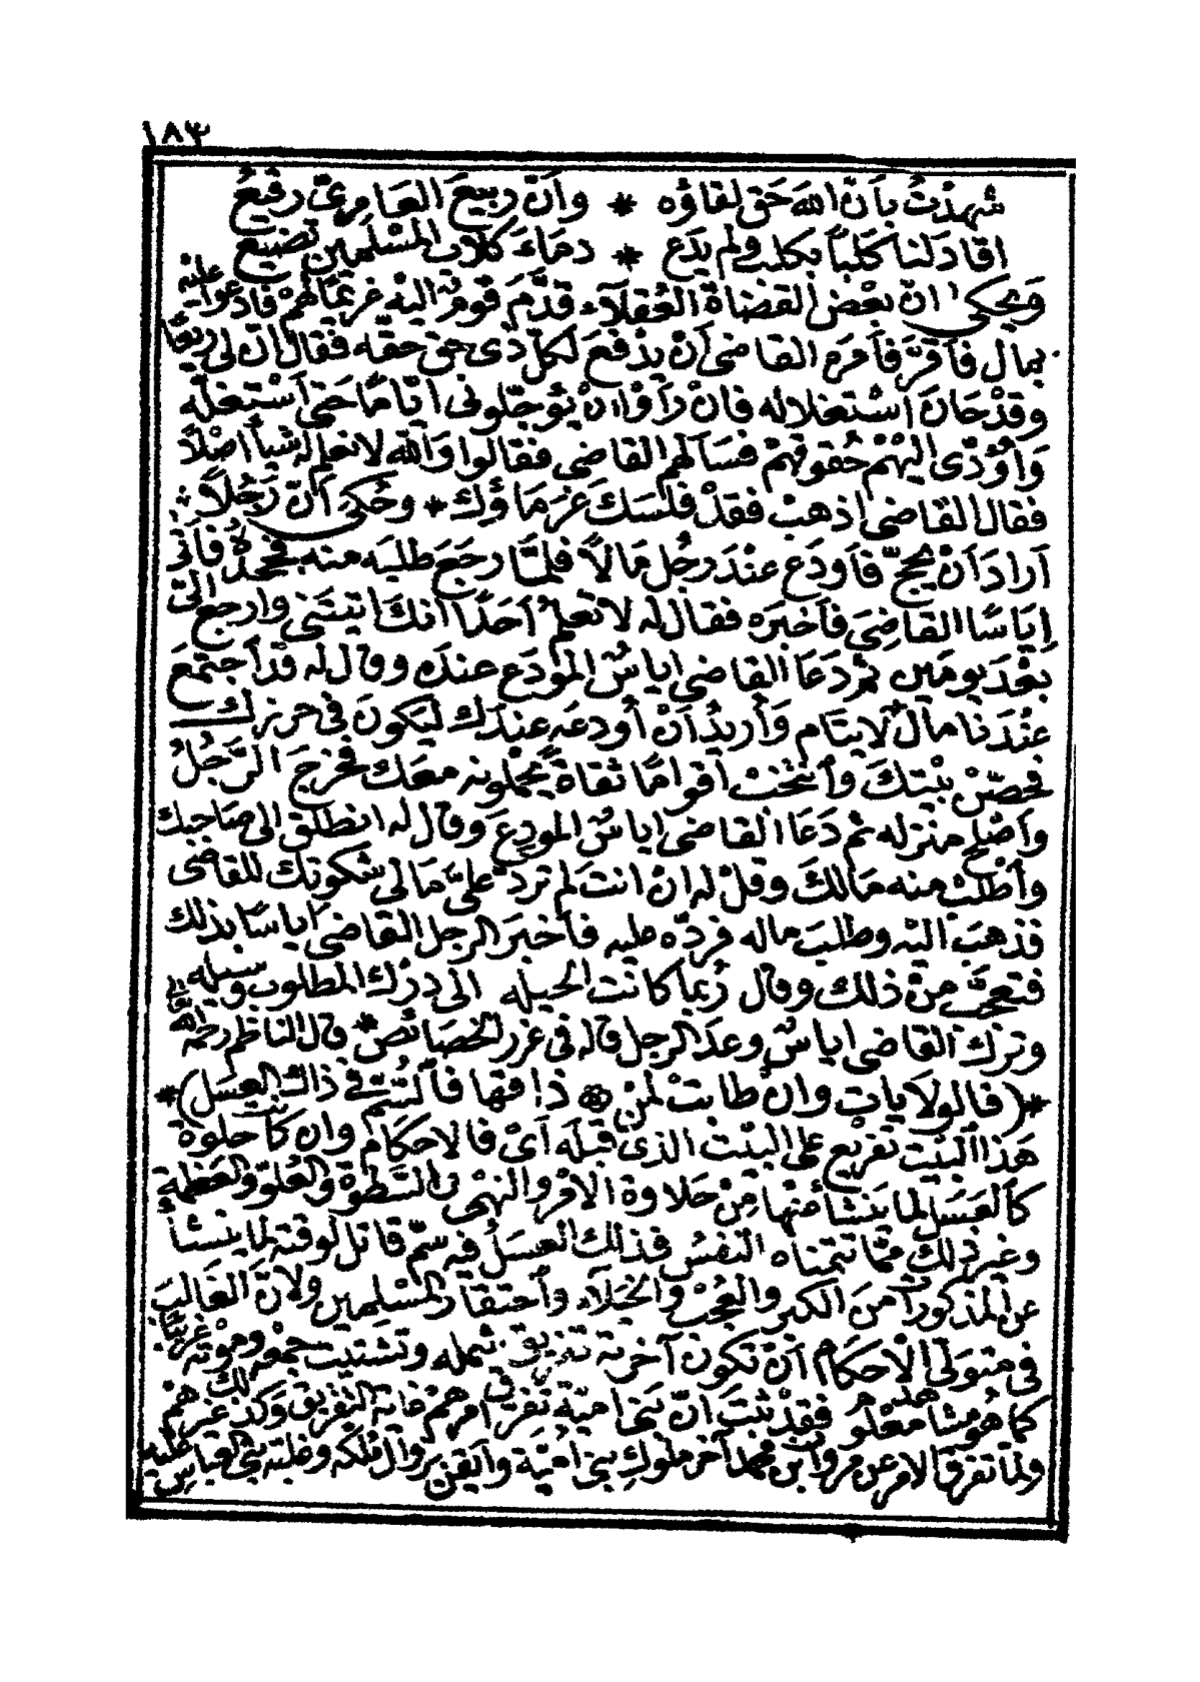 ١٨٣
شهدْتُ بأنّ اللهَ حَق لقاؤه * وأنّ ربيعَ العَامرىّ رفيعُ
اقادَ لنا كلباً بكلب ولم يدَع * دمَاءَ كلاب المسْلمين تضيع
وَيحكى انّ بعْض القضاة العُقلآء قدَّمَ قومٌ اليْه غريمًا لهمْ فادعوا عليْه
بمال فأقرَّ فأمرَ القاضى أنْ يدْفعَ لكلّ ذى حق حقّه فقال انّ لى ريعًا
وقدْ حَانَ اسْتغلاله فانْ رَأوْا انْ يؤجّلونى ايّامًا حَتى أسْتغلّه
وَأؤدّى اليْهمْ حُقوقهمْ فسَألهم القاضى فقالوا وَالله لا نعلم له شيأ اصْلاً
فقال القاضى اذهبْ فقدْ فلسَكَ غرمَاؤك * وحُكى أنّ رَجُلاً
آرادَ أنْ يحجّ فأودَع عنْدَ رجُل مَالاً فلمّا رجَعَ طلبَه منه فجحدهُ فأتى
إيَاسًا القاضىَ فأخبَره فقال له لا تعلمْ أحَدًا انكَ اتيتنى وارجع الىّ
بعْدَ يومَين ثم دَعَا القاضى اياسٌ المودَع عندَه وقال له قدْ اجتمعَ
عنْدَنا مال لايتام وَأريدُ أنْ أودعَه عندَك ليَكونَ فى حرزك
فحصّنْ بيْتكَ وأنتخبْ اقوامًا ثقاةً يحملونه معَك فخرجَ الرّجُلُ
وأصْلح منزله ثم دَعَا القاضى اياسٌ المودِعَ وقال له انطلق الى صَاحبك
وأطلبْ منه مَالكَ وقلْ له انْ انتَ لم تردّ علىَّ مَالى شكوتك للقاضى
فذهبَ اليْه وطلبَ ماله فردّه عليه فأخبَر الرجل القاضىَ اياسًا بذلك
فتعجّبَ منْ ذلك وقال رُبما كانت الحيله الى درْك المطلوب وسيله
وترك القاضى اياسٌ وعدَ الرجل قاله فى غرر الخصَائص * قال الناظم رحمه الله تعالى
*(فالولايات وانْ طابتْ لمن ۞ ذاقها فالسُّمّ فى ذاك العسَل)*
هَذا البَيْت تفريْع على البيْت الذى قبلَه أىْ فالاحكام وان كانت حلوة
كالعسَل لما ينشأ منْها منْ حَلاوة الامْر والنهْى والسَّطوة والعُلوّ والعَظمة
وغير ذلك ممّا تتمناه النفسُ فذلك العسَلُ فيه سمّ قاتل لوقته لما ينشأ
عن المذكورات منَ الكبر والعُجْب والخيَلاء وأحتقار المسْلمين ولأنّ الغَالبَ
فى متولّى الاحكام أنْ تكون آخرته تفريق شمله وتشتيت جمْعه وموته غريبًا
كما هو مشاهد معْلوم فقدْ ثبتَ انّ بنى اميّة تفرّق امرهم غاية التفريق وكذلك غيرهم
ولمّا تفرق الامر عن مروان بن محمد آخر ملوك بنى أميّة وأيقن بزوال ملكه وغلبة بنى العباس عليه